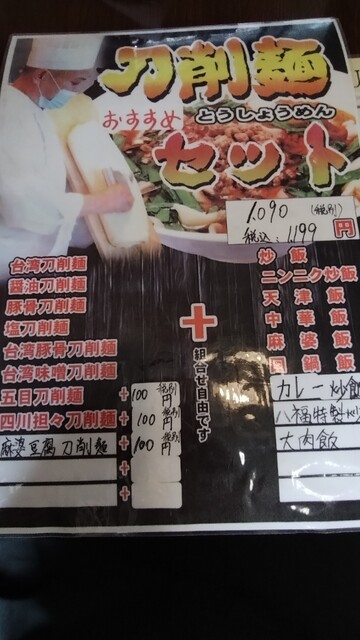 刀削麺
おすすめ
とうしょうめん
セット
1,090 (税別)
税込:1,199 円
台湾刀削麺
醤油刀削麺
豚骨刀削麺
塩刀削麺
台湾豚骨刀削麺
台湾味噌刀削麺
五目刀削麺 + 100円 税別
四川担々刀削麺 + 100円 税別
麻婆豆腐刀削麺 + 100円 税別
+
+
+
組合せ自由です
炒飯
ニンニク炒飯
天津飯
中華飯
麻婆飯
鍋飯
カレー炒飯
八福特製炒
大肉飯